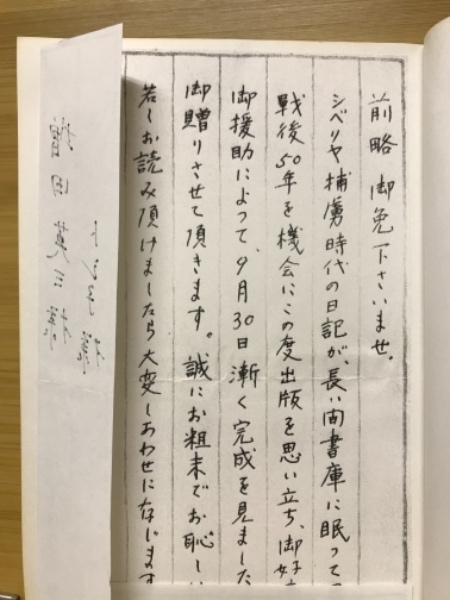 前略 御免下さいませ。
シベリヤ捕虜時代の日記が、長い間書庫に眠って
戦後50年を機会にこの度出版を思い立ち、御好
御援助によって、9月30日漸く完成を見ました
御贈りさせて頂きます。誠にお粗末でお恥しい
若しお読み頂けましたら大変しあわせに存じます
増田英三様